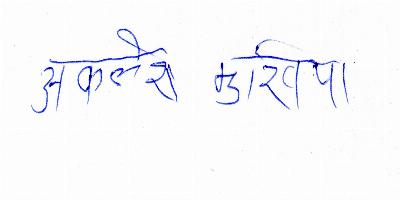 अकलेश मुखिया